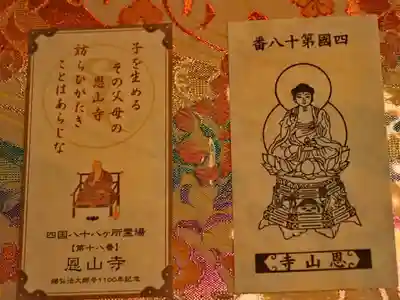 子を生める
その父母の
恩山寺
訪らひがたき
ことはあらじな
四国八十八ヶ所霊場
【第十八番】
恩山寺
贈弘法大師号1100年記念
四國第十八番
恩山寺